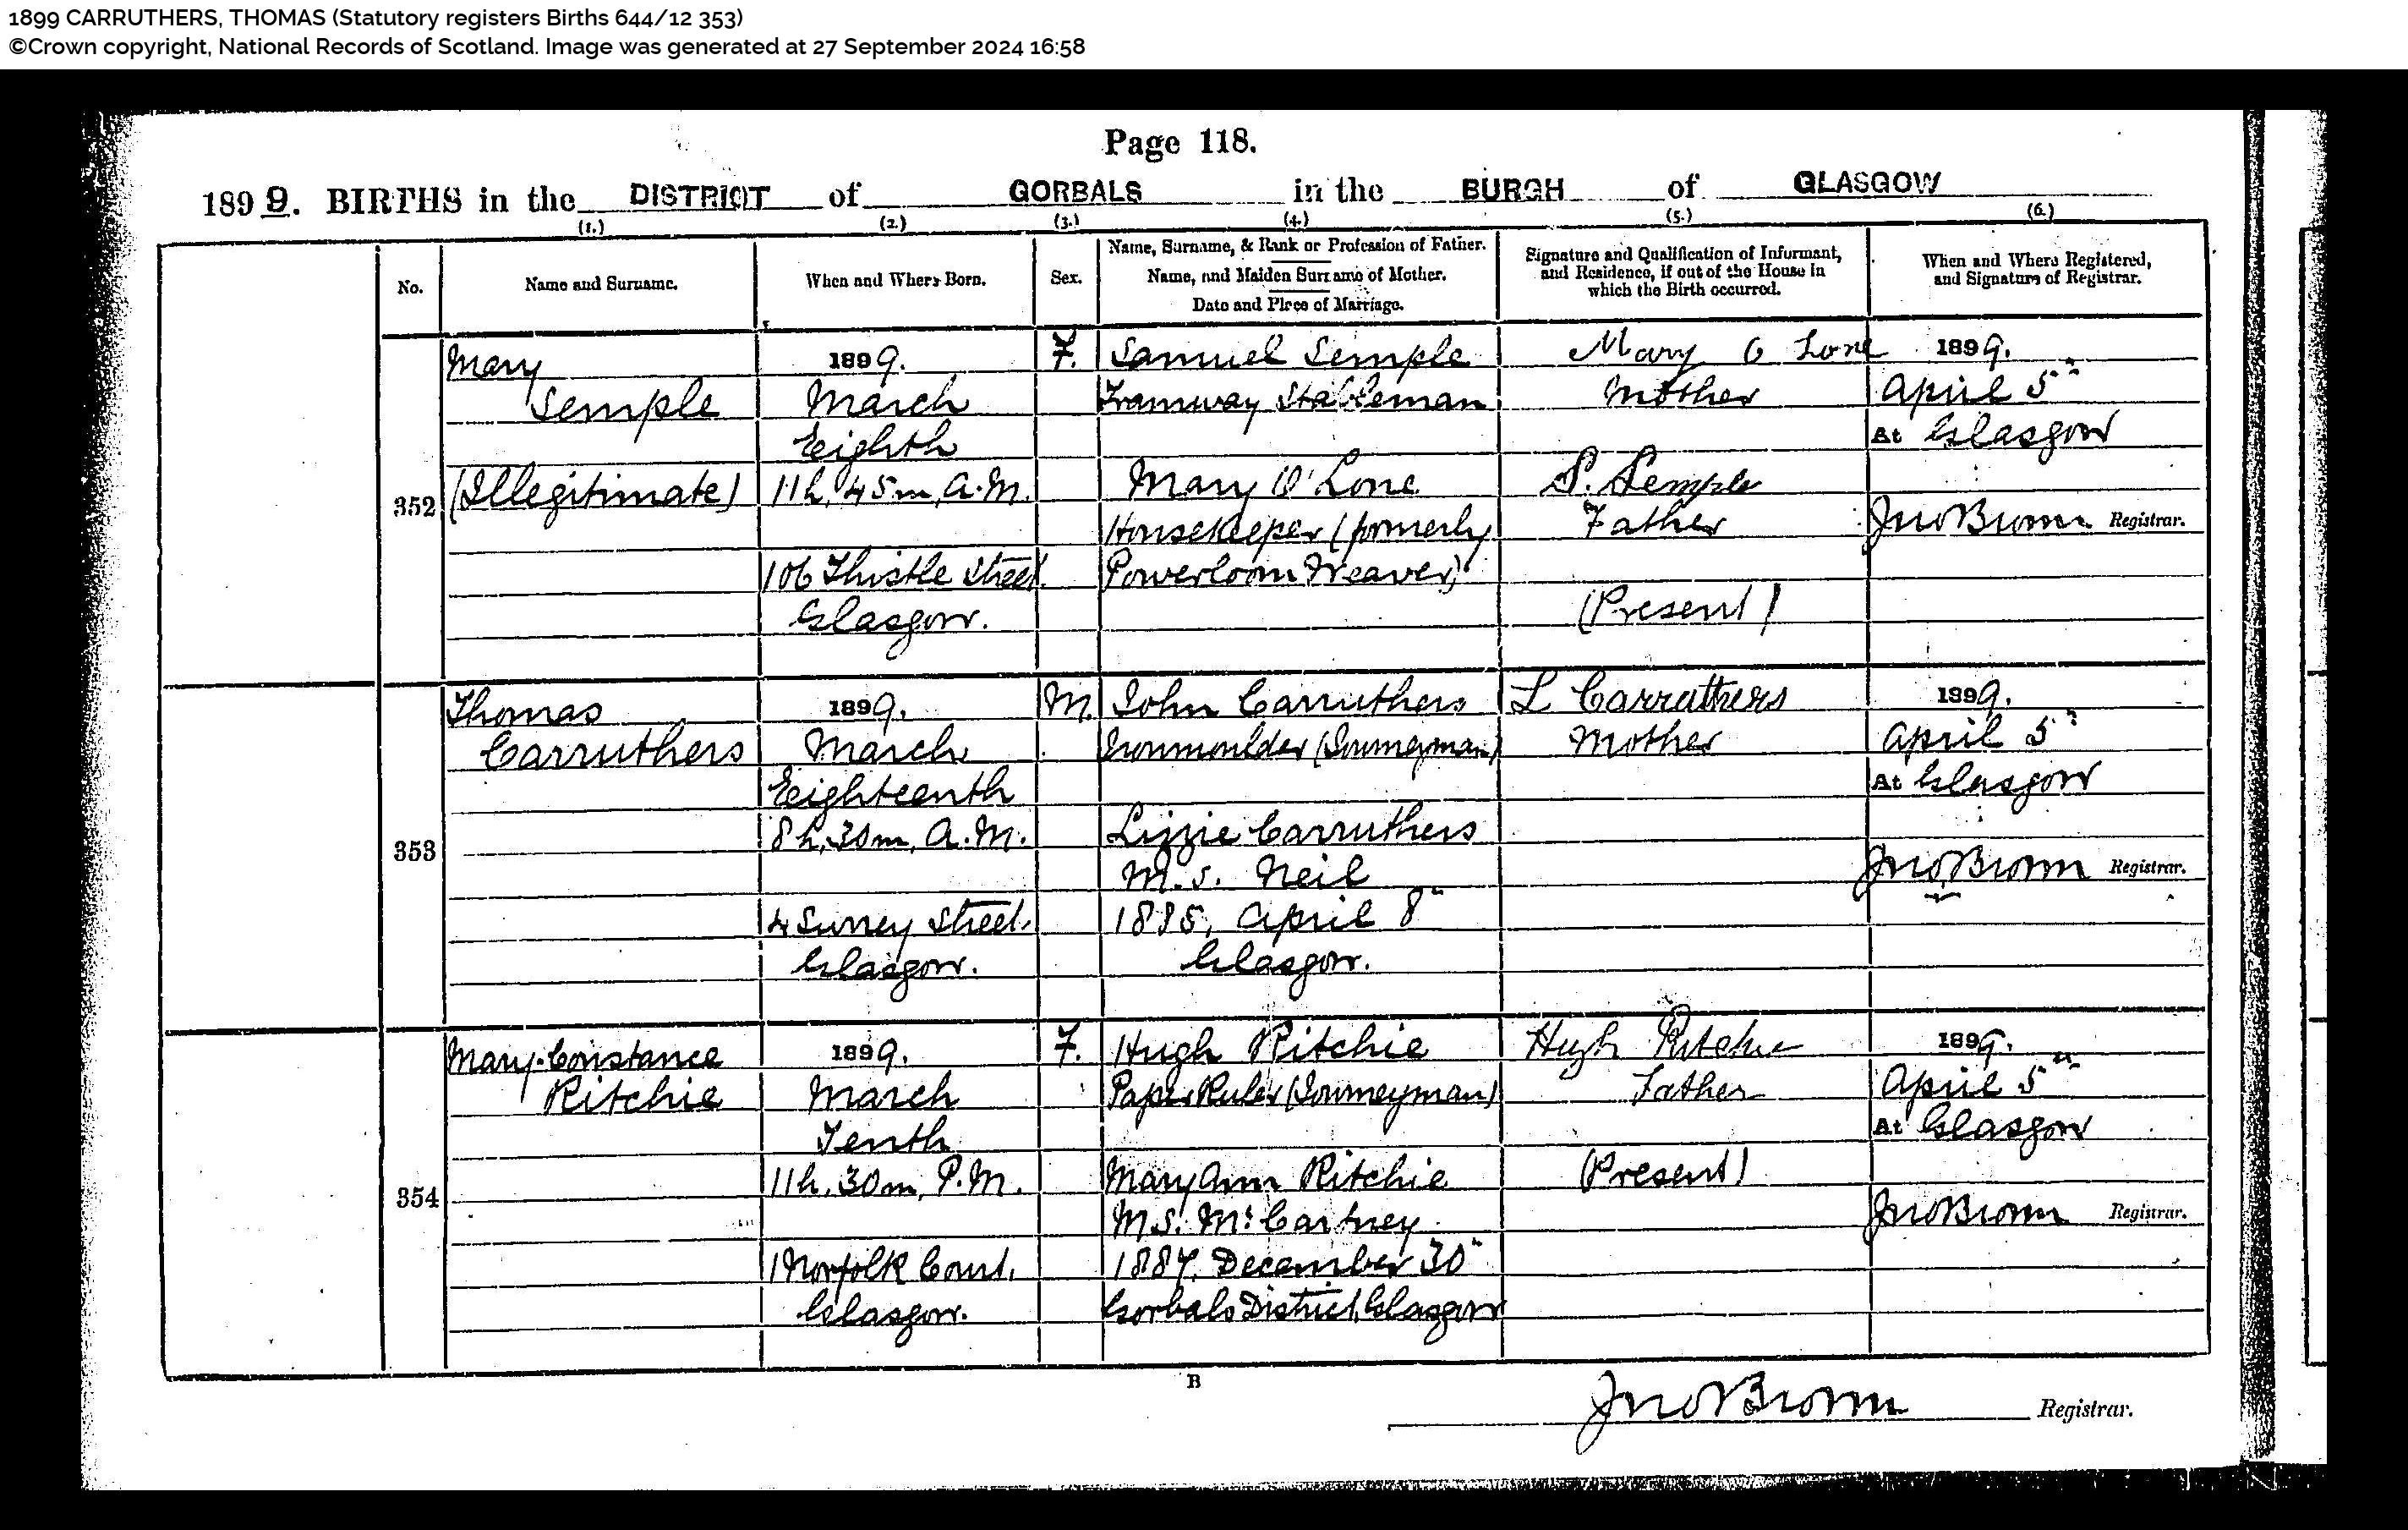 1899 CARRUTHERS, THOMAS (Statutory registers Births 644/12 353)
©Crown copyright, National Records of Scotland. Image was generated at 27 September 2024 16:58
Page 118.
1899. BIRTHS in the DISTRICT of GORBALS in the BURGH of GLASGOW
(1.) (2.) (3.) (4.) (5.) (6.)
No.
Name and Surname.
When and Where Born.
Sex.
Name, Surname, & Rank or Profession of Father.
Name, and Maiden Surname of Mother.
Date and Place of Marriage.
Signature and Qualification of Informant,
and Residence, if out of the House in
which the Birth occurred.
When and Where Registered,
and Signature of Registrar.
352
Mary
Semple
(Illegitimate)
1899.
March
Eighth
11h, 45m, A.M.
106 Thistle Street.
Glasgow.
F.
Samuel Semple
Tramway Stableman
Mary O'Lone
Housekeeper (formerly
Powerloom Weaver)
Mary O Lone
Mother
S. Semple
Father
(Present)
1899.
April 5"
At Glasgow
Jno Brown Registrar.
353
Thomas
Carruthers
1899.
March
Eighteenth
8h, 30m, A.M.
4 Surrey Street.
Glasgow.
M.
John Carruthers
Ironmoulder (Journeyman)
Lizzie Carruthers
M.S. Neil
1885, April 8"
Glasgow.
L Carruthers
Mother
1899.
April 5"
At Glasgow
Jno Brown Registrar.
354
Mary Constance
Ritchie
1899.
March
Tenth
11h, 30m, P.M.
1 Norfolk Court.
Glasgow.
F.
Hugh Ritchie
Paper Ruler (Journeyman)
Mary Ann Ritchie
M.S. McCartney
1887, December 30"
Gorbals District, Glasgow
Hugh Ritchie
Father
(Present)
1899.
April 5"
At Glasgow
Jno Brown Registrar.
B
Jno Brown Registrar.